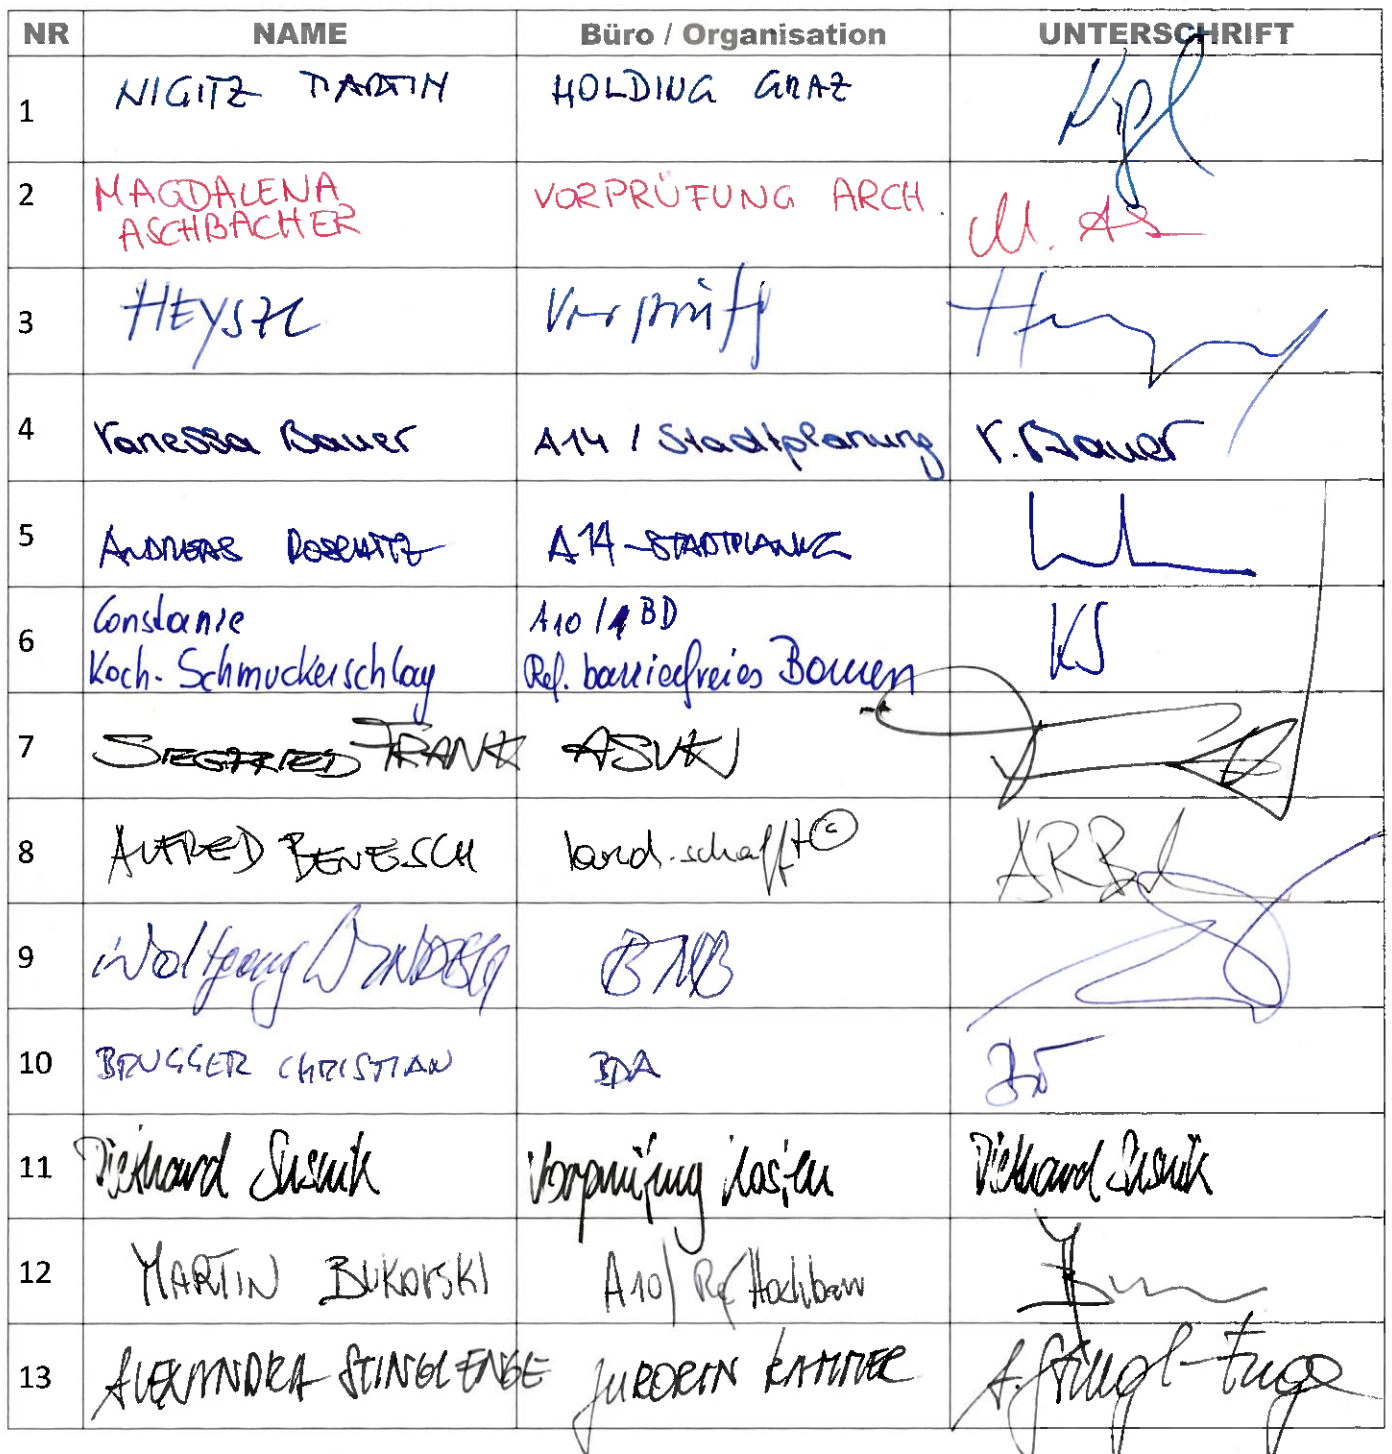 NR NAME Büro / Organisation UNTERSCHRIFT
1 NIGITZ MARTIN HOLDING GRAZ
2 MAGDALENA ASCHBACHER VORPRÜFUNG ARCH. M. AS
3 HEYSZL
4 Vanessa Bauer A14 / Stadtplanung V. Bauer
5 ANDREAS A14-STADTPLANUNG
6 Constanze
Koch-Schmuckerschlag
A10 / BD
Ref. barrierefreies Bauen
KS
7 SIEGFRIED FRANK ASVK
8 ALFRED BENESCH land.schafft ©
9 Wolfgang
10 BRUGGER CHRISTIAN BDA
11 Diethard Susnik Vorprüfung Kosten Diethard Susnik
12 MARTIN BUKOVSKI A10/ Ref Hochbau
13 ALEXANDRA STINGL ENGE JURORIN KAMMER A. Stingl-Enge